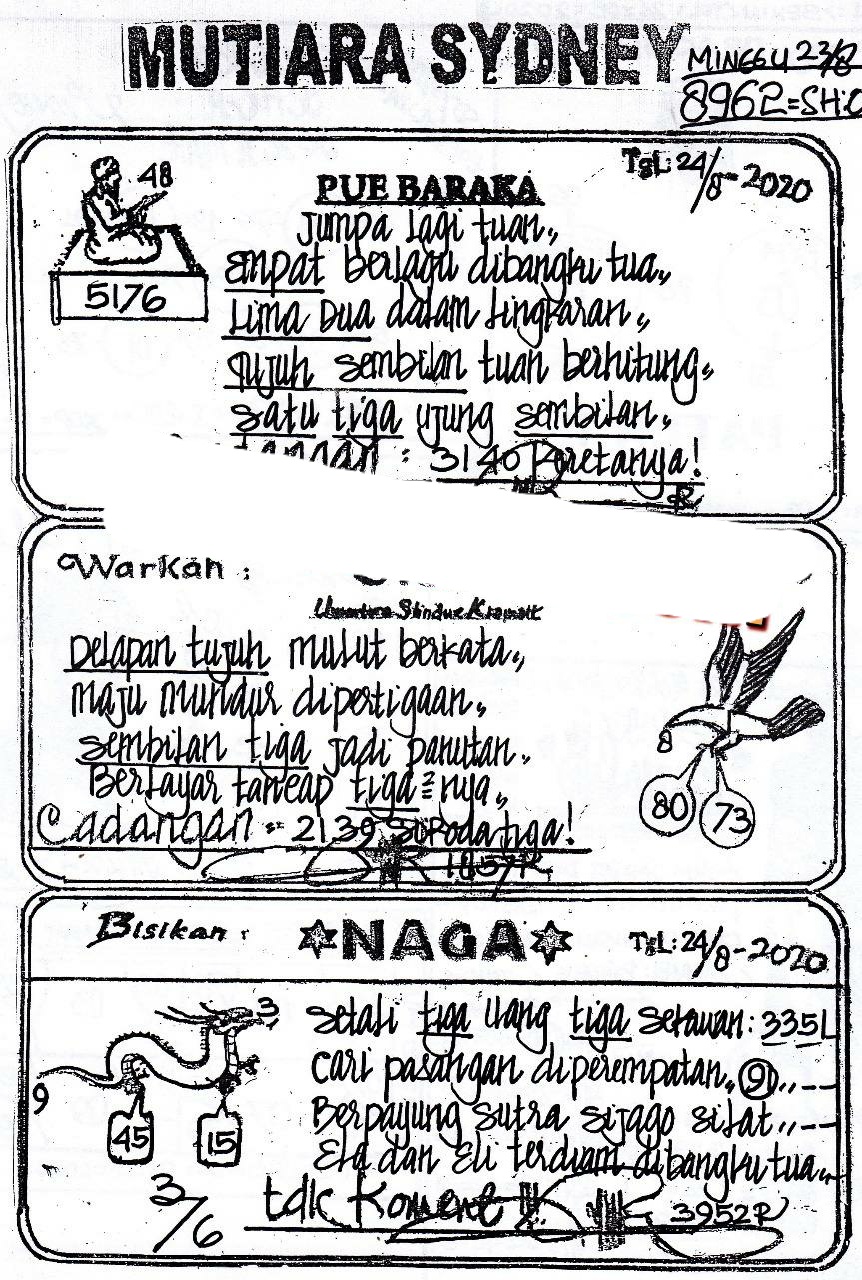 MUTIARA SYDNEY
MINGGU 23/8
8962=SH:C
48
5176
Tgl: 24/8-2020
PUE BARAKA
Jumpa lagi tuan,,
empat berlagu dibangku tua,,
Lima Dua dalam lingkaran,,
Tujuh sembilan tuan berhitung,,
satu tiga ujung sembilan,,
: 3140 Keretanya!
R
Warkah :
Delapan tujuh mulut berkata,,
maju mundur dipertigaan,,
sembilan tiga jadi panutan,,
Berlayar tancap tiga² nya,,
Cadangan = 2139 sirodatiga!
8
80
73
Bisikan :
NAGA
Tgl: 24/8-2020
3
9
45
15
3/6
Setali tiga uang tiga serawan: 3351
cari pasangan diperempatan,, 9,, --
Berpayung sutra sijago silat,, --
Ela dan Eli terdiam dibangku tua,,
tdk Koment !!
3952R